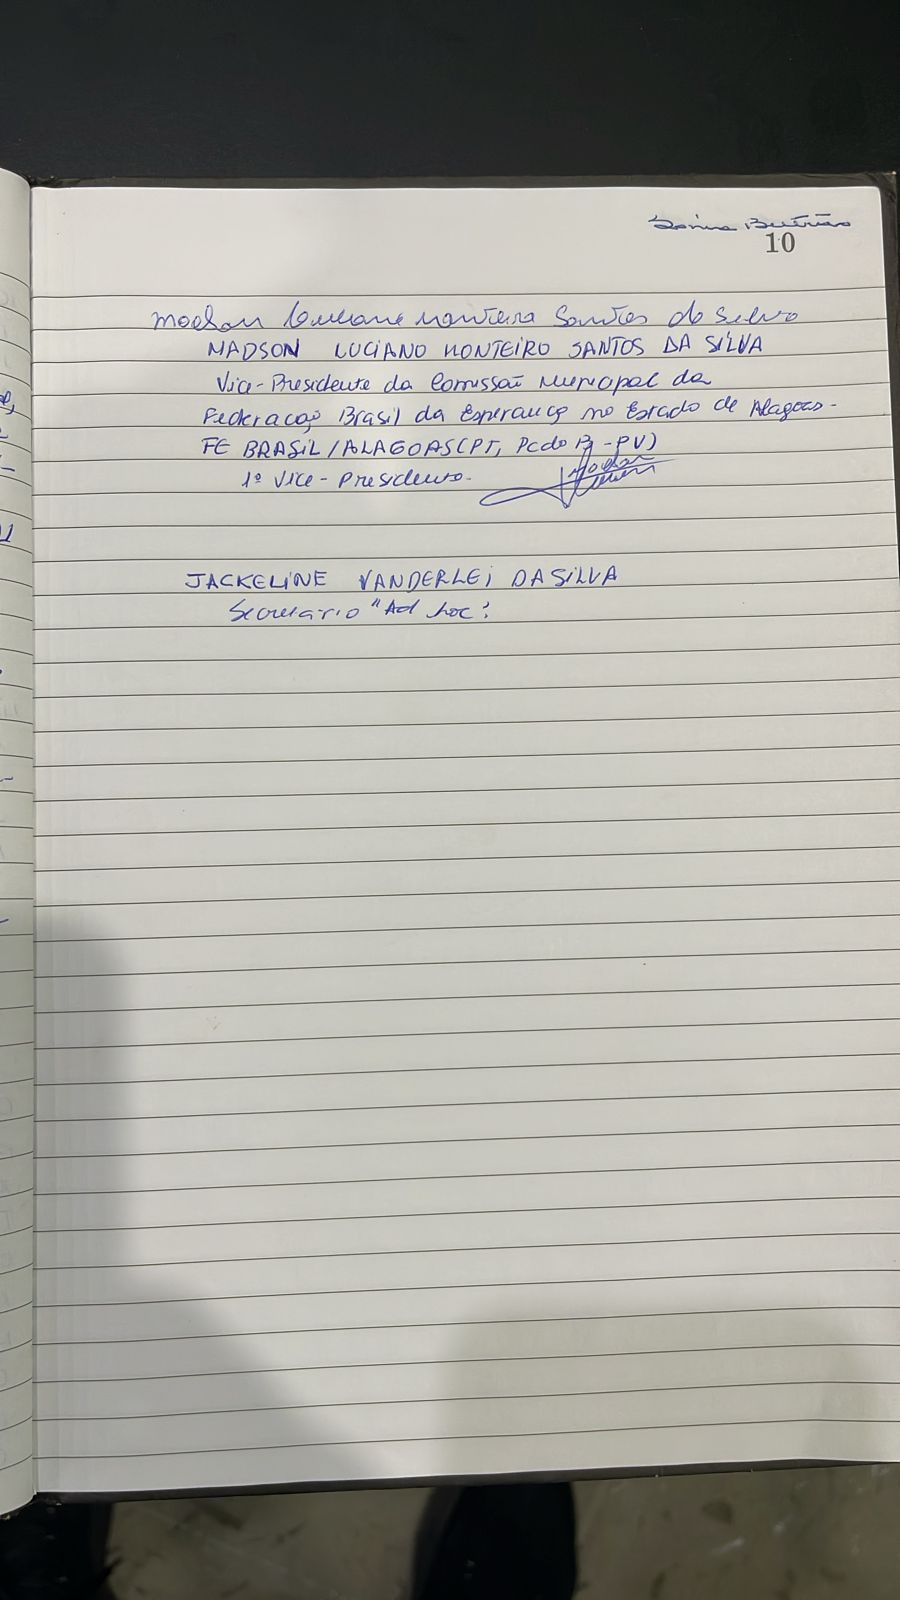 10
Madson Luciano Monteiro Santos da Silva
MADSON LUCIANO MONTEIRO SANTOS DA SILVA
Vice-Presidente da Comissão Municipal da
Federação Brasil da Esperança no Estado de Alagoas-
FE BRASIL/ALAGOAS(PT, PcdoB-PV)
1º Vice-Presidente.
JACKELINE VANDERLEI DA SILVA
Secretário "Ad hoc".